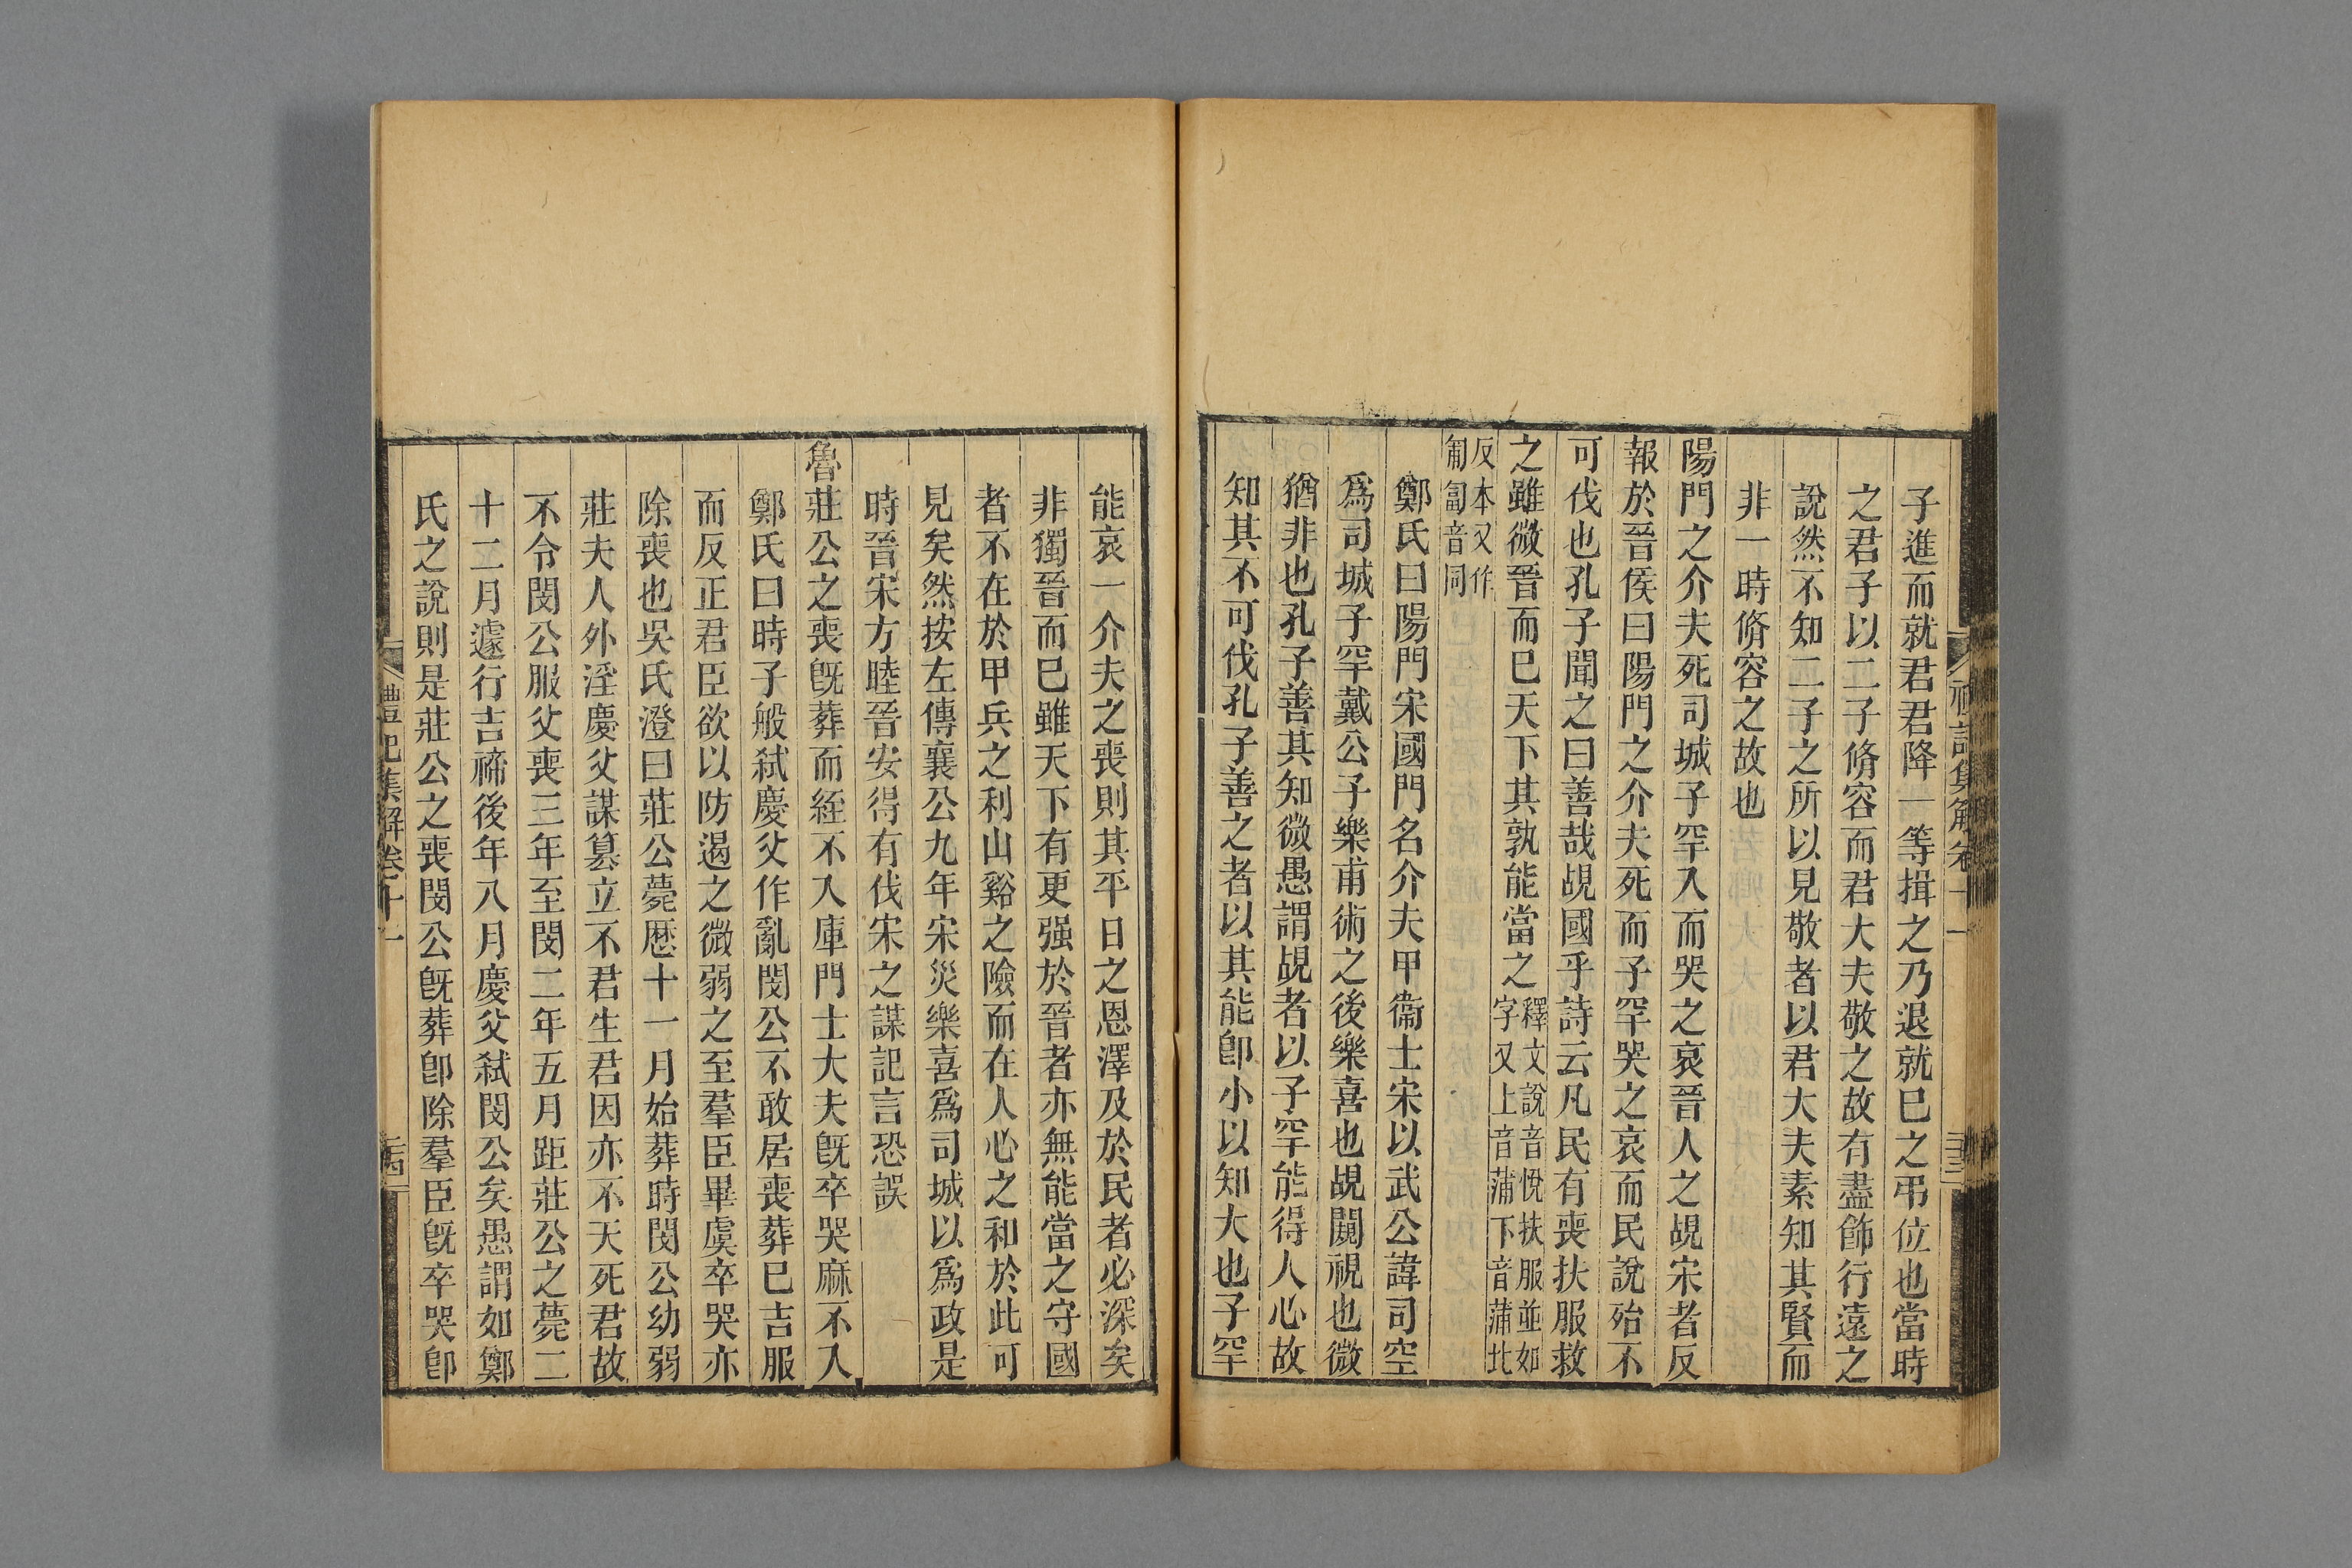 子進而就君君降一等揖之乃退就巳之弔位也當時
之君子以二子脩容而君大夫敬之故有盡飾行遠之
說然不知二子之所以見敬者以君大夫素知其賢而
非一時脩容之故也
陽門之介夫死司城子罕入而哭之哀晉人之覘宋者反
報於晉侯曰陽門之介夫死而子罕哭之哀而民說殆不
可伐也孔子聞之曰善哉覘國乎詩云凡民有喪扶服救
之雖微晉而巳天下其孰能當之釋文說音悅扶服並如
字又上音蒲下音蒲北
反本又作
匍匐音同
鄭氏曰陽門宋國門名介夫甲衞士宋以武公諱司空
爲司城子罕戴公子樂甫術之後樂喜也覘闚視也微
猶非也孔子善其知微愚謂覘者以子罕能得人心故
知其不可伐孔子善之者以其能卽小以知大也子罕
能哀一介夫之喪則其平日之恩澤及於民者必深矣
非獨晉而巳雖天下有更强於晉者亦無能當之守國
者不在於甲兵之利山谿之險而在人心之和於此可
見矣然按左傳襄公九年宋災樂喜爲司城以爲政是
時晉宋方睦晉安得有伐宋之謀記言恐誤
魯莊公之喪旣葬而絰不入庫門士大夫旣卒哭麻不入
鄭氏曰時子般弑慶父作亂閔公不敢居喪葬巳吉服
而反正君臣欲以防遏之微弱之至羣臣畢虞卒哭亦
除喪也吳氏澄曰莊公薨歷十一月始葬時閔公幼弱
莊夫人外淫慶父謀簒立不君生君因亦不天死君故
不令閔公服父喪三年至閔二年五月距莊公之薨二
十二月遽行吉禘後年八月慶父弑閔公矣愚謂如鄭
氏之說則是莊公之喪閔公旣葬卽除羣臣旣卒哭卽
禮記集解卷十一